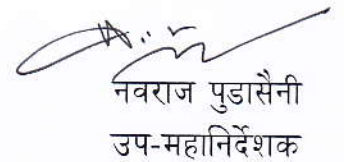 नवराज पुडासैनी
उप-महानिर्देशक